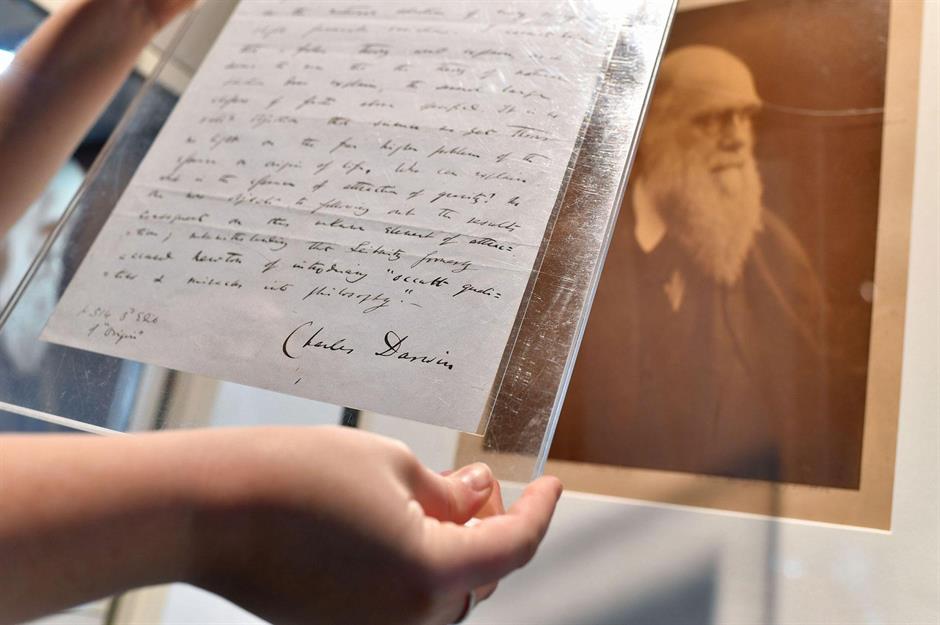 the natural selection of many
slight favourable variations. I cannot
that a false theory would explain, as it
seems to me that the theory of natural
selection does explain, the several large
classes of facts above specified. It is no
valid objection that science as yet throws
no light on the far higher problem of the
essence or origin of life. Who can explain
what is the essence of attraction of gravity? No
one now objects to following out the results
consequent on this unknown element of attrac=
-tion; notwithstanding that Leibnitz formerly
accused Newton of introducing "occult quali=
-ties & miracles into philosophy".—
Charles Darwin
p 514 3d Edn
of "Origin"